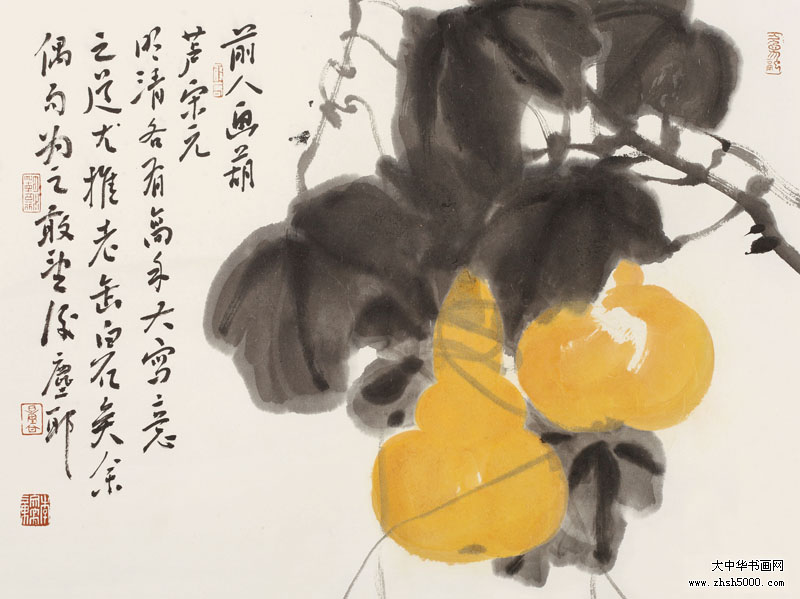 前人画葫
芦宋元
明清各有高手大写意
之道尤推老缶白石矣余
偶而为之敢望后尘耶
大中华书画网
www.zhsh5000.com